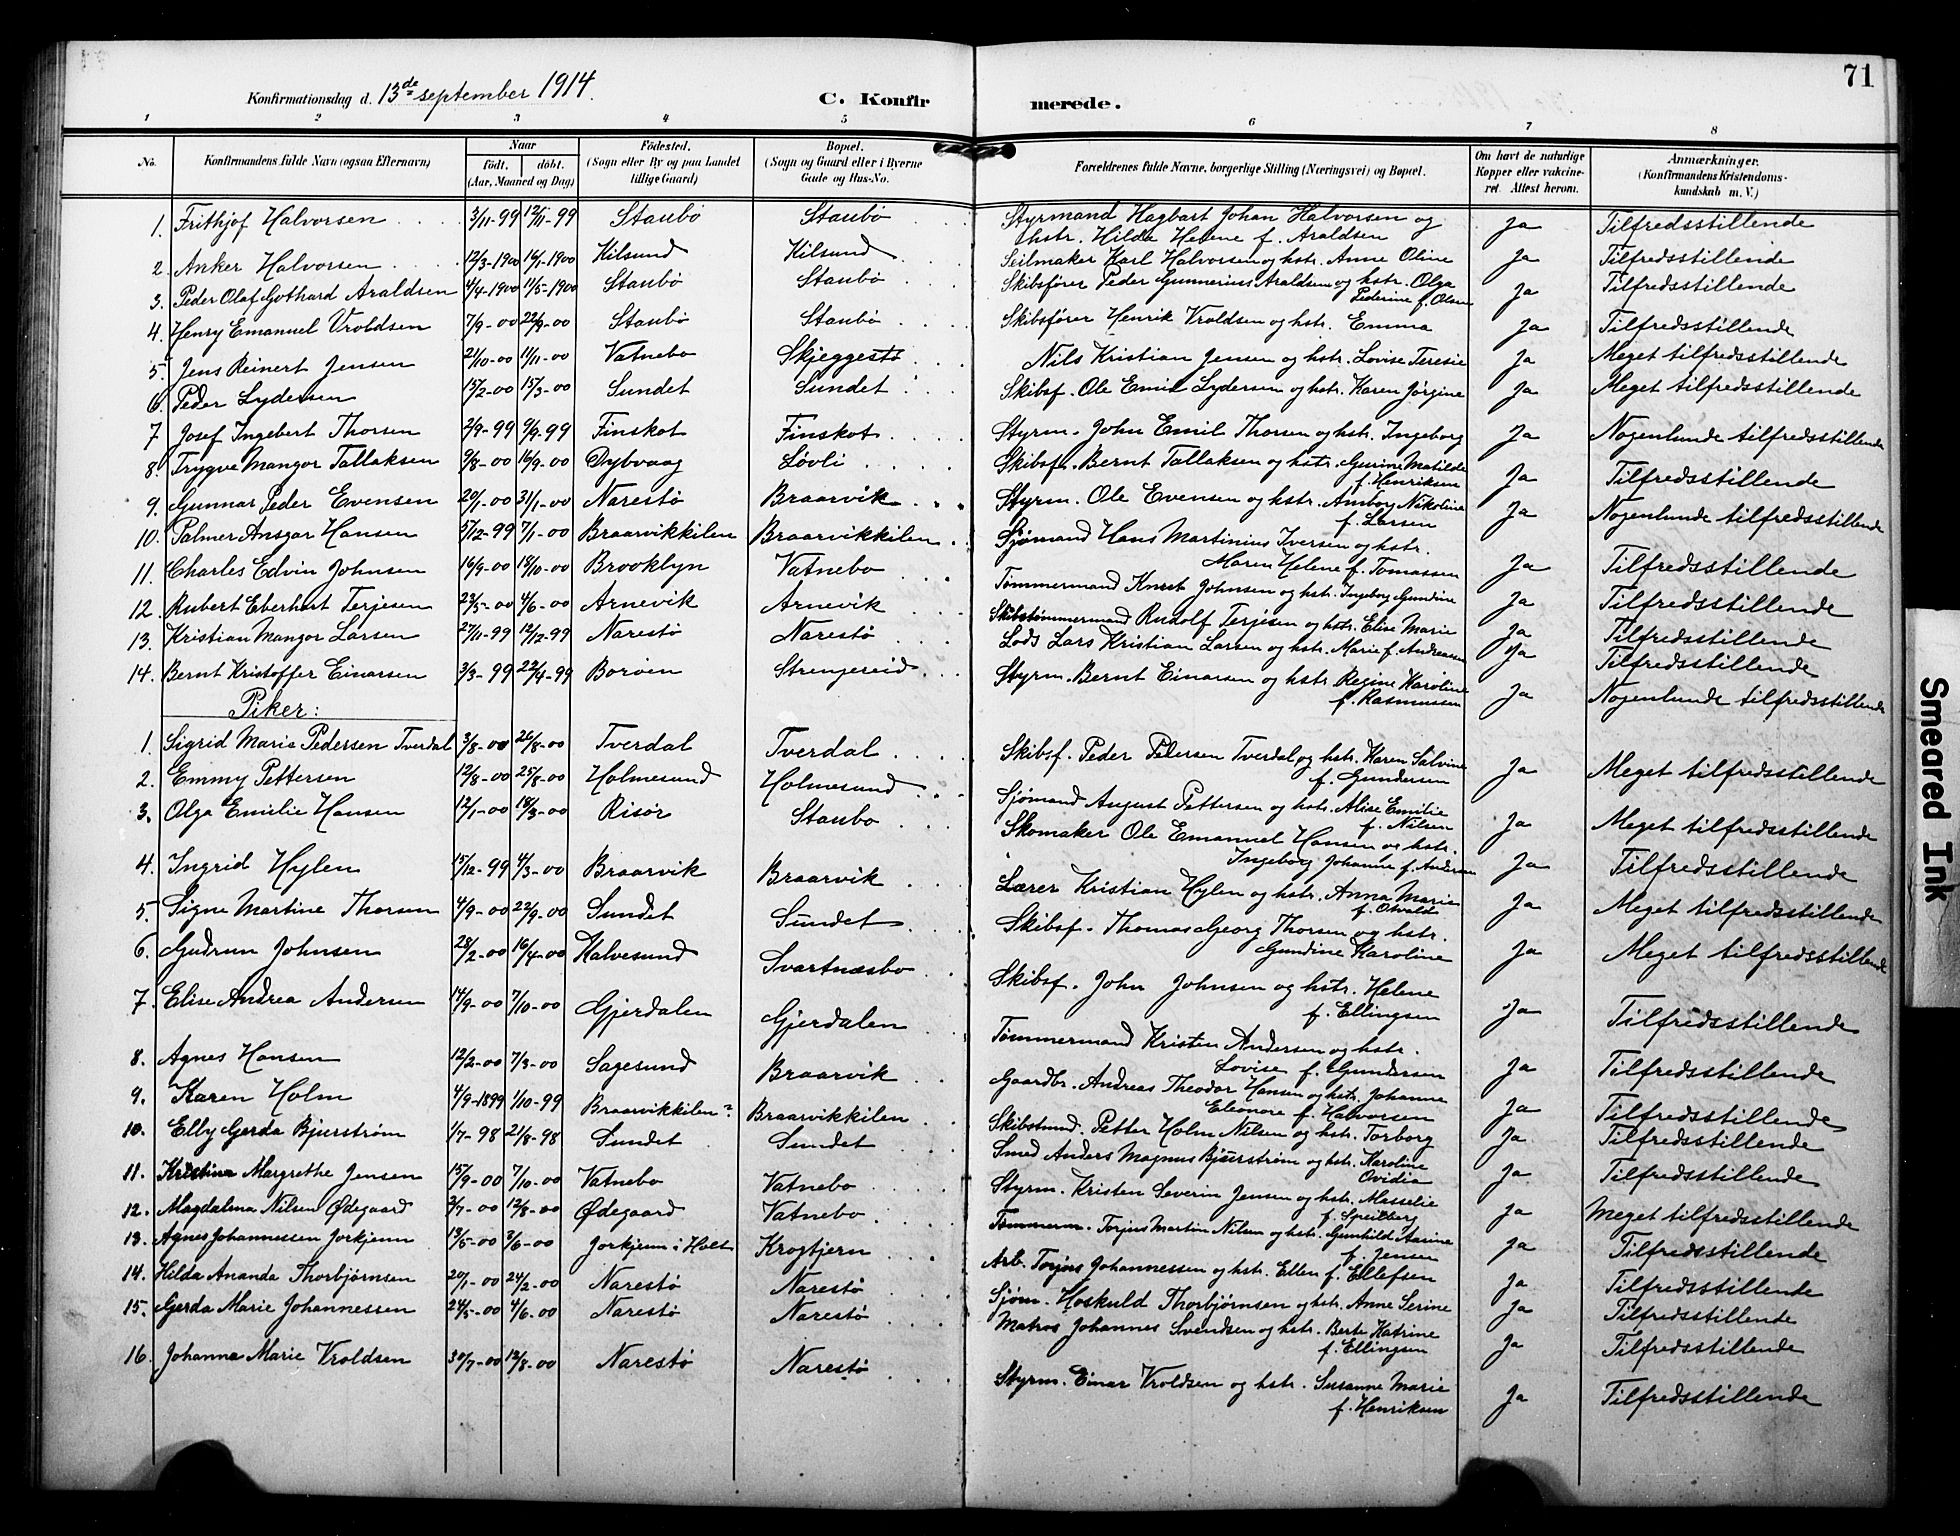 71
Konfirmationsdag d. 13de september 1914.
C. Konfirmerede.
1 2 3 4 5 6 7 8
No. Konfirmandens fulde Navn (ogsaa Efternavn) Naar født. døbt. (Aar, Maaned og Dag) Fødested. (Sogn eller By og paa Landet tillige Gaard) Bopæl. (Sogn og Gaard eller i Byerne Gade og Hus-No. Forældrenes fulde Navne, borgerlige Stilling (Næringsvei) og Bopæl. Om havt de naturlige Kopper eller vakcineret. Attest herom. Anmærkninger. (Konfirmandens Kristendomskundskab m. V.)
1. Frithjof Halvorsen 3/11-99 12/11-99 Staubø Staubø Styrmand Hagbart Johan Halvorsen og hstr. Hilda Helene f. Araldsen Ja Tilfredsstillende
2. Anker Halvorsen 12/3-1900 16/1-1900 Kilsund Kilsund Seilmaker Karl Halvorsen og hstr. Anne Oline Ja Tilfredsstillende
3. Peder Olaf Gothard Araldsen 4/4-1900 11/5-1900 Staubø Staubø Skibsfører Peder Gunnerius Araldsen og hstr. Olga Pederine f. Olsen Ja Tilfredsstillende
4. Henry Emanuel Vroldsen 7/9-00 22/9-00 Staubø Staubø Skibsfører Henrik Vroldsen og hstr. Emma Ja Tilfredsstillende
5. Jens Reinert Jensen 21/10-00 11/11-00 Vatnebo Skjeggestø Nils Kristian Jensen og hstr. Lovise Teresie Ja Meget tilfredsstillende
6. Peder Lydersen 15/2-00 15/3-00 Sundet Sundet Skibsf. Ole Emil Lydersen og hstr. Karen Jørgine Ja Meget tilfredsstillende
7 Josef Ingebert Thorsen 2/9-99 9/9-99 Finskot Finskot Styrm. John Emil Thorsen og hstr. Ingeborg Ja Nogenlunde tilfredsstillende
8. Trygve Mangor Tallaksen 9/8-00 16/9-00 Dybvaag Løvli Skibsf. Bernt Tallaksen og hstr. Gurine Matilde f. Henriksen Ja Tilfredsstillende
9. Gunnar Peder Evensen 20/1-00 31/1-00 Narestø Braarvik Styrm. Ole Evensen og hstr. Amborg Nikoline f. Larsen Ja Nogenlunde tilfredsstillende
10. Palmer Ansgar Hansen 5/12-99 7/1-00 Braarvikkilen Braarvikkilen Sjømand Hans Martinius Iversen og hstr. Maren Helene f. Tomassen Ja Tilfredsstillende
11. Charles Edvin Johnsen 16/9-00 18/10-00 Brooklyn Vatnebo Tømmermand Knut Johnsen og hstr. Ingeborg Gundine Ja Tilfredsstillende
12. Rubert Eberhart Terjesen 23/5-00 4/6-00 Arnevik Arnevik Skibstømmermand Rudolf Terjesen og hstr. Elise Marie Ja Tilfredsstillende
13. Kristian Mangor Larsen 27/11-99 12/12-99 Narestø Narestø Lods Lars Kristian Larsen og hstr. Marie f. Andreassen Ja Tilfredsstillende
14. Bernt Kristoffer Einarsen 3/3-99 22/4-99 Borøen Strengereid Styrm. Bernt Einarsen og hstr. Regine Karoline f. Rasmussen Ja Nogenlunde tilfredsstillende
Piker:
1. Sigrid Marie Pedersen Tverdal 3/8-00 26/8-00 Tverdal Tverdal Skibsf. Peder Pedersen Tverdal og hstr. Karen Salvine f. Gundersen Ja Meget tilfredsstillende
2. Emmy Pettersen 12/8-00 25/8-00 Holmesund Holmesund Sjømand August Pettersen og hstr. Alise Emilie f. Nilsen Ja Meget tilfredsstillende
3. Olga Emilie Hansen 12/1-00 18/3-00 Risør Staubo Skomaker Ole Emanuel Hansen og hstr. Ingeborg Johanne f. Andersen Ja Tilfredsstillende
4. Ingrid Hylen 15/12-99 4/3-00 Braarvik Braarvik Lærer Kristian Hylen og hstr. Anna Marie f. Osvald Ja Meget tilfredsstillende
5. Signe Martine Thorsen 4/9-00 22/9-00 Sundet Sundet Skibsf. Thomas Georg Thorsen og hstr. Gundine Karoline Ja Meget tilfredsstillende
6. Gudrun Johnsen 28/2-00 16/4-00 Kalvesund Svartnæsbo Skibsf. John Johnsen og hstr. Helene f. Ellingsen Ja Tilfredsstillende
7. Elise Andrea Andersen 14/9-00 7/10-00 Gjerdalen Gjerdalen Tømmermand Kristen Andersen og hstr. Lovise f. Gundersen Ja Tilfredsstillende
8. Agnes Hansen 12/2-00 7/3-00 Sagesund Braarvik Gaardbr. Andreas Theodor Hansen og hstr. Johanne Eleonore f. Halvorsen Ja Tilfredsstillende
9. Karen Holm 4/9-1899 1/10-99 Braarvikkilen? Braarvikkilen Skibstmd. Petter Holm Nilsen og hstr. Torborg Ja Tilfredsstillende
10. Elby Gerda Bjurstrøm 1/7-98 21/8-98 Sundet Sundet Smed Anders Magnus Bjurstrøm og hstr. Karoline Ovidia Ja Tilfredsstillende
11. Kristine Margrethe Jensen 15/9-00 7/10-00 Vatnebo Vatnebo Styrm. Kristen Severin Jensen og hstr. Masselie f. Speilberg Ja Meget tilfredsstillende
12. Magdalena Nilsen Ødegaard 2/7-00 12/8-00 Ødegaard Vatnebo Tømmerm. Torjus Martin Nilsen og hstr. Gunhild Aasine f. Jensen Ja Tilfredsstillende
13. Agnes Johannessen Jorkjenn 13/5-00 3/6-00 Jorkjenn i Holt Krogtjern Arb. Torjus Johannessen og hstr. Ellen f. Ellefsen Ja Tilfredsstillende
14. Hilda Ananda Thorbjørnsen 20/1-00 24/2-00 Narestø Narestø Sjøm. Hoskuld Thorbjørnsen og hstr. Anne Serine Ja Tilfredsstillende
15. Gerda Marie Johannessen 24/5-00 4/6-00 Narestø Narestø Matros Johannes Svendsen og hstr. Berte Katrine f. Ellingsen Ja Tilfredsstillende
16. Johanna Marie Vroldsen 30/7-00 12/8-00 Narestø Narestø Styrm. Einar Vroldsen og hstr. Susanne Marie f. Henriksen Ja Tilfredsstillende
Smeared Ink